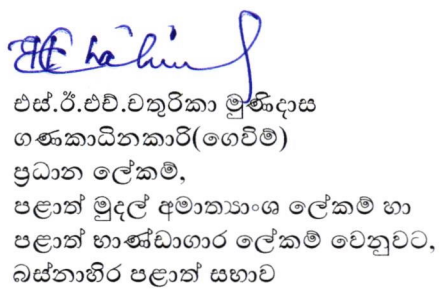 එස්.ඊ.එච්.චතුරිකා මුණිදාස
ගණකාධිනකාරි(ගෙවිම්)
ප්‍රධාන ලේකම්,
පළාත් මුදල් අමාත්‍යාංශ ලේකම් හා
පළාත් භාණ්ඩාගාර ලේකම් වෙනුවට,
බස්නාහිර පළාත් සභාව